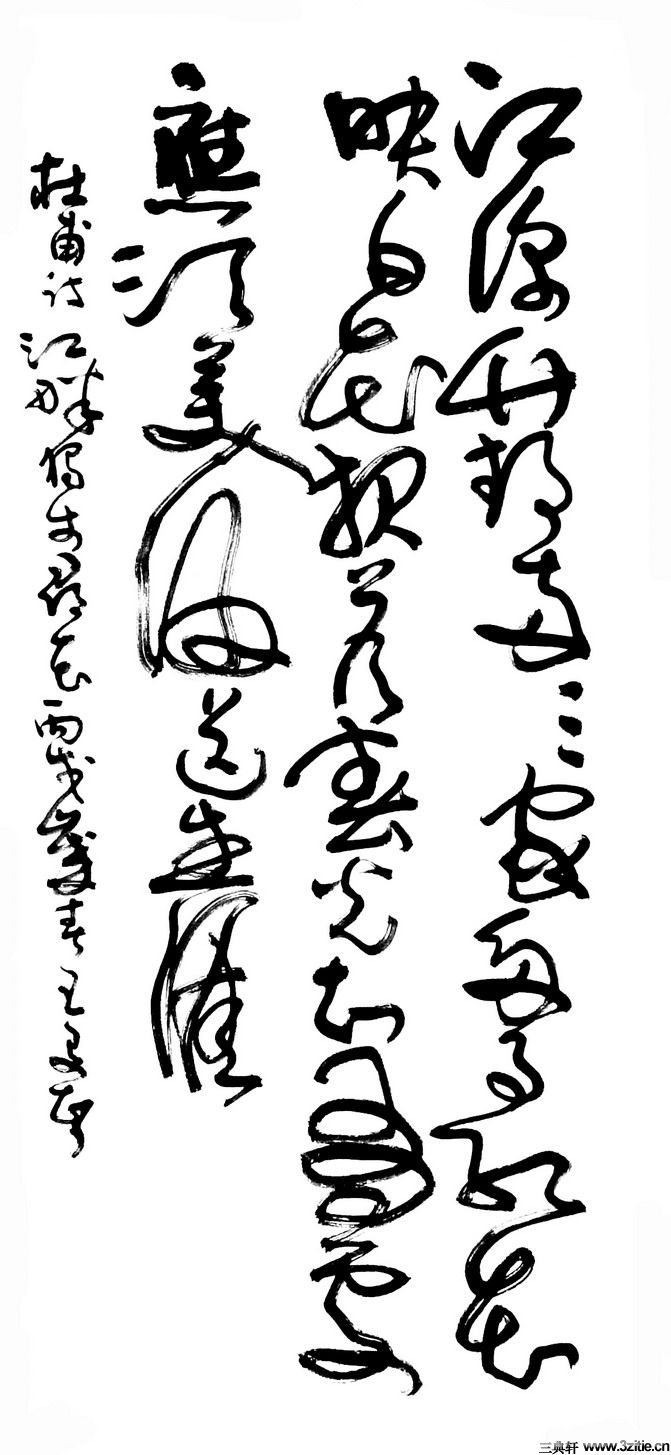 江深竹静兩三家多事紅花
映白花報答春光知有處
應須美酒送生涯
杜甫诗江畔獨步尋花丙戌歲春王
三典轩 www.3zitie.cn